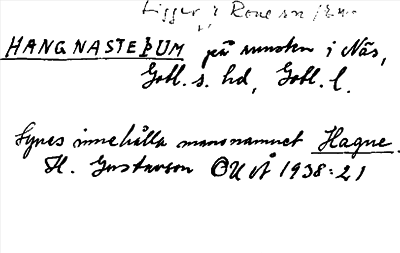 Ligger i Rone sn
HANGNASTEÞUM på runsten i Näs,
Gotl. s. hd, Gotl. l.
Synes innehålla mansnamnet Hagne.
H. Gustavson OUÅ 1938:21